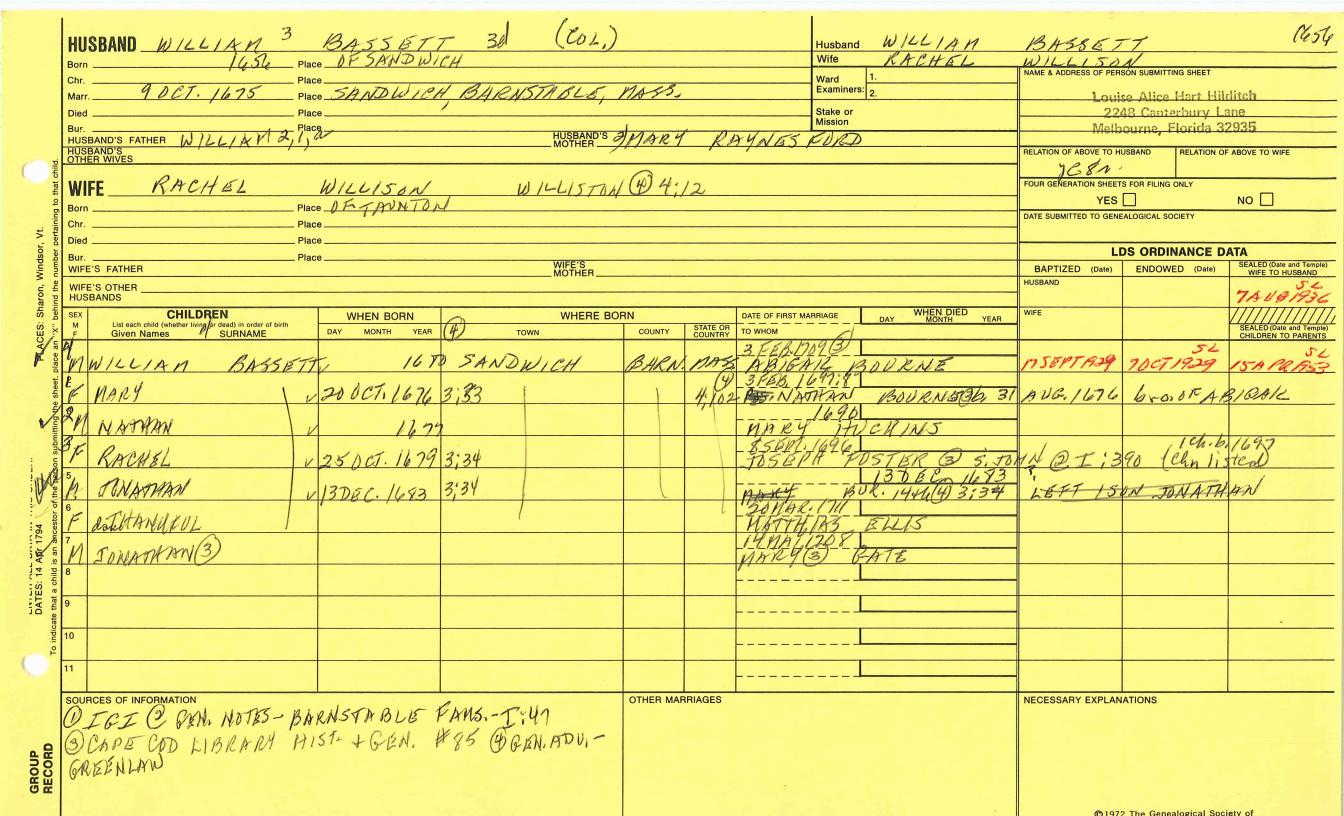 HUSBAND WILLIAM 3 BASSETT 3d (COL.)
Born 1656 Place OF SANDWICH
Chr. Place
Marr. 9 OCT. 1675 Place SANDWICH, BARNSTABLE, MASS.
Died Place
Bur. Place
HUSBAND'S FATHER WILLIAM 2,1,a HUSBAND'S MOTHER 2) MARY RAYNES FORD
HUSBAND'S OTHER WIVES
Husband WILLIAM BASSETT 1656
Wife RACHEL WILLISON
Ward Examiners: 1. 2.
Stake or Mission
NAME & ADDRESS OF PERSON SUBMITTING SHEET
Louise Alice Hart Hilditch
2248 Canterbury Lane
Melbourne, Florida 32935
RELATION OF ABOVE TO HUSBAND RELATION OF ABOVE TO WIFE
FOUR GENERATION SHEETS FOR FILING ONLY
YES NO
DATE SUBMITTED TO GENEALOGICAL SOCIETY
WIFE RACHEL WILLISON WILLISTON (4) 4;12
Born Place OF TAUNTON
Chr. Place
Died Place
Bur. Place
WIFE'S FATHER WIFE'S MOTHER
WIFE'S OTHER HUSBANDS
LDS ORDINANCE DATA
BAPTIZED (Date) ENDOWED (Date) SEALED (Date and Temple) WIFE TO HUSBAND
HUSBAND SL 7 AUG 1936
WIFE SEALED (Date and Temple) CHILDREN TO PARENTS
SEX M F
CHILDREN
List each child (whether living or dead) in order of birth
Given Names SURNAME
WHEN BORN DAY MONTH YEAR
(4) WHERE BORN TOWN COUNTY STATE OR COUNTRY
DATE OF FIRST MARRIAGE TO WHOM
WHEN DIED DAY MONTH YEAR
3 FEB. 1709 (3)
M WILLIAM BASSETT 1670 SANDWICH BARN. MASS ABIGAIL BOURNE SEPT 1929 7 OCT 1929 SL 15 APR 1933 SL
(4) 3 FEB. 1697;8
1 F MARY 20 OCT. 1676 3;33 4,102 NATHAN BOURNE 31 AUG. 1676 bro. OF ABIGAIL
1690
2 M NATHAN 1677 MARY HUCHINS
1 ch. b. 1697
3 F RACHEL 25 OCT. 1679 3;34 JOSEPH FOSTER (3) S. JOHN @ I;390 (chn listed)
13 DEC. 1683
5 M JONATHAN 13 DEC. 1683 3;34 MARY BUR. (4) 3;34 LEFT 1 SON JONATHAN
20 MAR. 1711
6 F THANKFUL MATTHIAS ELLIS
14 MAY 1708
7 M JONATHAN (3) MARY (3) GATE
8
9
10
11
SOURCES OF INFORMATION
(1) IGI (2) GEN. NOTES - BARNSTABLE FAMS. - I;47
(3) CAPE COD LIBRARY HIST. + GEN. #85 (4) GEN. ADV. -
GREENLAW
OTHER MARRIAGES
NECESSARY EXPLANATIONS
©1972 The Genealogical Society of
PLACES: Sharon, Windsor, Vt.
DATES: 14 Apr 1794
To indicate that a child is an ancestor of the person submitting the sheet, place an "X" behind the number pertaining to that child.
GROUP RECORD